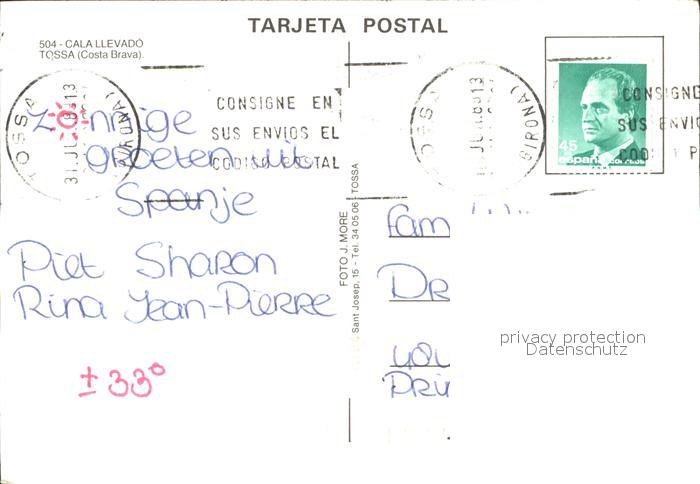 TARJETA POSTAL
504 - CALA LLEVADÓ
TOSSA (Costa Brava).
TOSSA
31 JUL
13
(GIRONA)
CONSIGNE EN
SUS ENVIOS EL
CODIGO POSTAL
TOSSA
JUL
13
GIRONA)
CONSIGNE
SUS ENVIO
COD P
45
españa
Zonnige
groeten uit
Spanje
Piet Sharon
Rina Jean-Pierre
± 33°
FOTO J. MORE
Sant Josep, 15 - Tel. 34 05 06 - TOSSA
fam
DR
privacy protection
Datenschutz